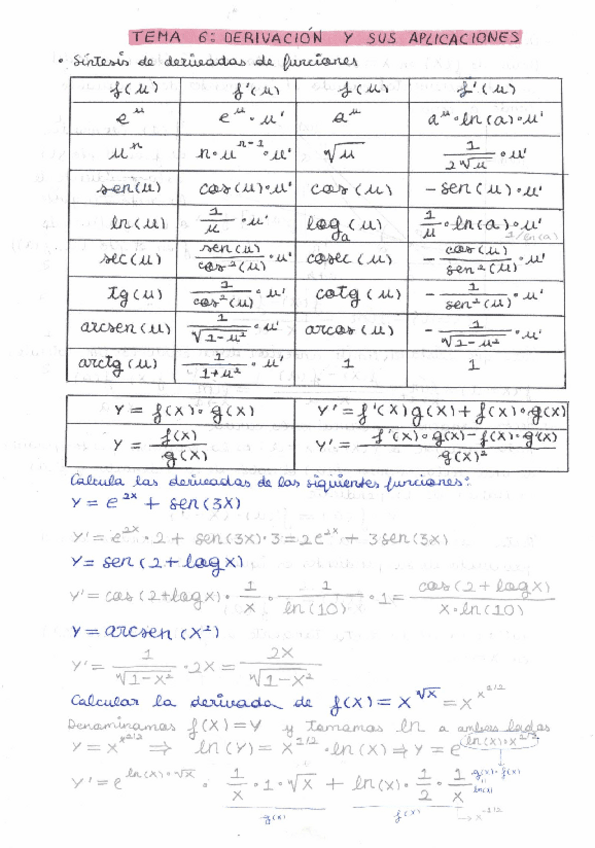 TEMA 6: DERIVACIÓN Y SUS APLICACIONES
• Síntesis de derivadas de funciones
f(u) f'(u) f(u) f'(u)
e^u e^u·u' a^u a^u·ln(a)·u'
u^n n·u^(n-1)·u' √u 1/(2√u)·u'
sen(u) cos(u)·u' cos(u) -sen(u)·u'
ln(u) 1/u·u' log_a(u) 1/u·ln(a)·u' 1/ln(a)
sec(u) sen(u)/cos²(u)·u' cosec(u) -cos(u)/sen²(u)·u'
tg(u) 1/cos²(u)·u' cotg(u) -1/sen²(u)·u'
arcsen(u) 1/√(1-u²)·u' arcos(u) -1/√(1-u²)·u'
arctg(u) 1/(1+u²)·u' 1 1
Y = f(x)·g(x) Y' = f'(x)g(x)+f(x)·g(x)
Y = f(x)/g(x) Y' = (f'(x)·g(x)-f(x)·g'(x))/g(x)²
Calcula las derivadas de las siguientes funciones:
Y = e^(2x) + sen(3x)
Y' = e^(2x)·2 + sen(3x)·3 = 2e^(2x) + 3sen(3x)
Y = sen(2+logx)
Y' = cos(2+logx)·1/x·1/ln(10)·1 = cos(2+logx)/(x·ln(10))
Y = arcsen(x²)
Y' = 1/√(1-x²)·2x = 2x/√(1-x²)
Calcular la derivada de f(x) = x^√x = x^(x^(1/2))
Denominamos f(x)=Y y tomamos ln a ambos lados
Y = x^(x^(1/2)) ⇒ ln(Y) = x^(1/2)·ln(x) ⇒ Y = e^(ln(x)·x^(1/2))
Y' = e^(ln(x)·√x)·1/x·1·√x + ln(x)·1/2·1/x g(x)·f(x)
g(x) f(x) → x^(-1/2)